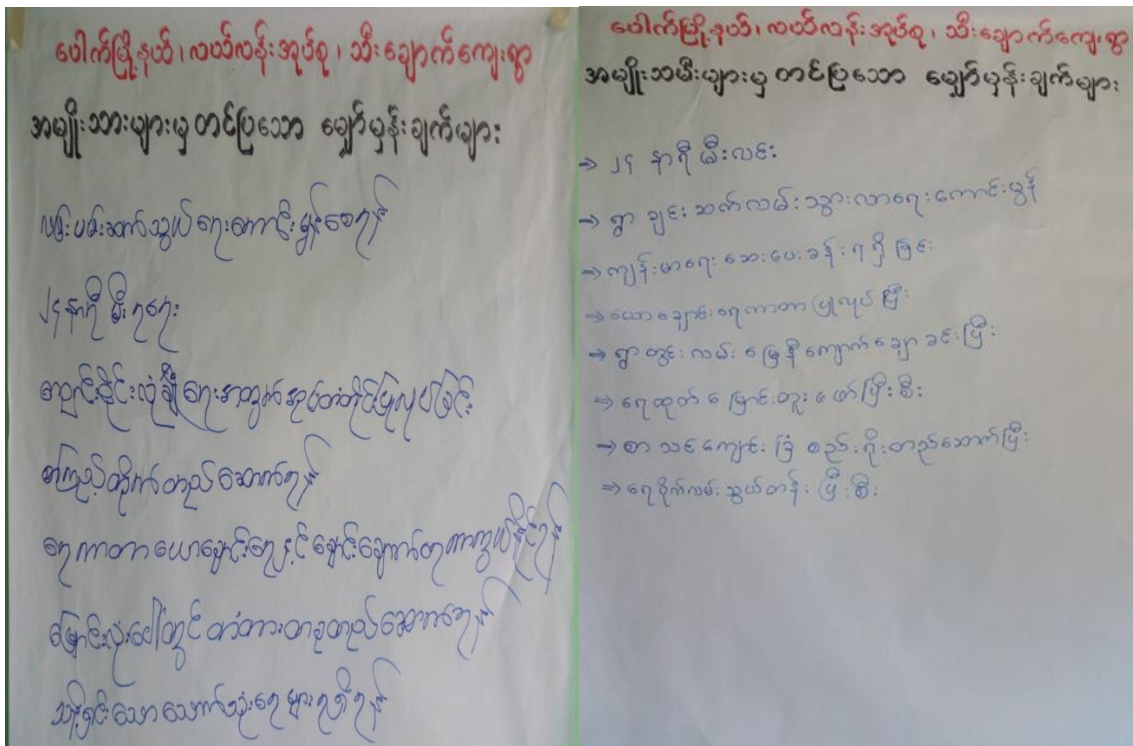 ပေါက်မြို့နယ်၊ လယ်လန်းအုပ်စု၊ သီးချောက်ကျေးရွာ
အမျိုးသားများမှ တင်ပြသော မျှော်မှန်းချက်များ
လမ်းပမ်းဆက်သွယ်ရေးကောင်းမွန်စေရန်
၂၄ နာရီ မီးရရေး
ကျောင်းဝိုင်းလုံခြုံရေးအတွက် အုပ်တံတိုင်းပြုလုပ်ခြင်း
စာကြည့်တိုက်တည်ဆောက်ရန်
ရေကာတာ ယောချောင်းရေနှင့် ချောင်းချောက်တူးကာကွယ်နိုင်ရန်
မြောင်းလုံးပေါ်တွင် တံတားတခုတည်ဆောက်ရန်
သန့်ရှင်းသော သောက်သုံးရေများရရှိရန်
ပေါက်မြို့နယ်၊ လယ်လန်းအုပ်စု၊ သီးချောက်ကျေးရွာ
အမျိုးသမီးများမှ တင်ပြသော မျှော်မှန်းချက်များ
→ ၂၄ နာရီ မီးလင်း
→ ရွာချင်းဆက်လမ်းသွားလာရေးကောင်းမွန်
→ ကျန်းမာရေး ဆေးပေးခန်း ရရှိခြင်း
→ ယောချောင်းရေကာတာ ပြုလုပ်ပြီး
→ ရွာတွင်းလမ်း မြေနီကျောက်ချောခင်းပြီး
→ ရေထုတ်မြောင်းတူးဖော်ပြီးစီး
→ စာသင်ကျောင်းခြံစည်းရိုးတည်ဆောက်ပြီး
→ ရေပိုက်လမ်းသွယ်တန်းပြီးစီး